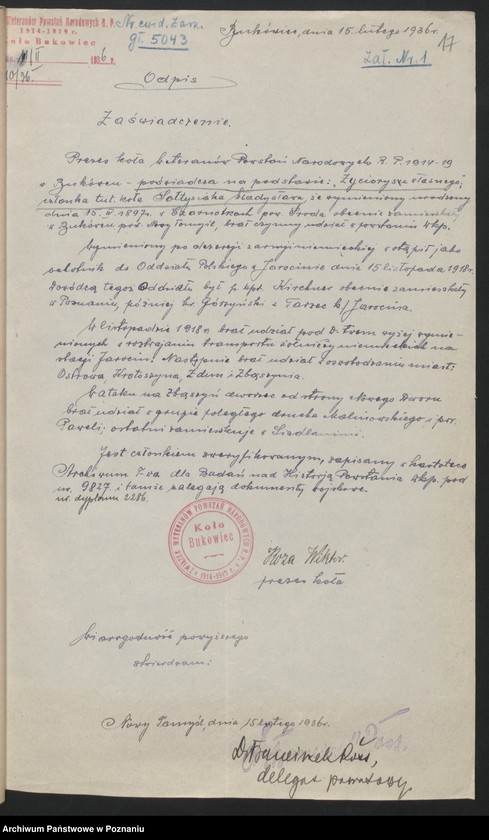 Weteranów Powstań Narodowych R. P.
1914-1919 r.
Koło Bukowiec
Nr. ewid. Zarz.
gł. 5043
Bukówiec, dnia 15. lutego 1936r.
17
Zał. Nr. 1
1936 r.
Odpis
Zaświadczenie.
Prezes koła Weteranów Powstań Narodowych R. P. 1914-19
w Bukówcu - poświadcza na podstawie: "Życiorysu własnego,
członka tut. koła Sołtysiaka Władysława, że wymieniony urodzony
dnia 15. 1897r. w Czarnotkach pow. Środa obecnie zamieszkały
w Bukówcu pow. Nowy Tomyśl, brał czynny udział w powstaniu wlkp.
Wymieniony po dezercji z armji niemieckiej wstąpił jako
szkolnik do Oddziału Polskiego w Jarocinie dnia 15 listopada 1918r.
Dowódcą tegoż Oddziału był p. kpt. Kirchner obecnie zamieszkały
w Poznaniu, później hr. Górzyński z Tarzec k/ Jarocina.
W listopadzie 1918 r. brał udział pod D-twem wyżej wymie-
nionych w rozbrajaniu transportu żołnierzy niemieckich na
stacji Jarocin. Następnie brał udział w oswobodzeniu miast:
Ostrowa, Krotoszyna, Zdun i Zbąszynia.
W ataku na Zbąszyń dworzec od strony Nowego Dworu
brał udział w grupie poległego druha Malinowskiego i por.
Paweli; ostatni zamieszkuje w Siedlaninie.
Jest członkiem zweryfikowanym, zapisany w kartotece
Archiwum T-wa dla Badań nad Historją Powstania wlkp. pod
nr. 9827 i tamże zalegają dokumenty wojskowe.
nr. dyplomu 2286.
ZWIĄZEK WETERANÓW POWSTAŃ NARODOWYCH R. P.
1914-1919 r.
Koło
Bukowiec
Koza Wiktor.
prezes koła
Wiarogodność powyższego
stwierdzam:
Nowy Tomyśl, dnia 15 lutego 1936r.
Franciszek
delegat powiatowy
Archiwum Państwowe w Poznaniu